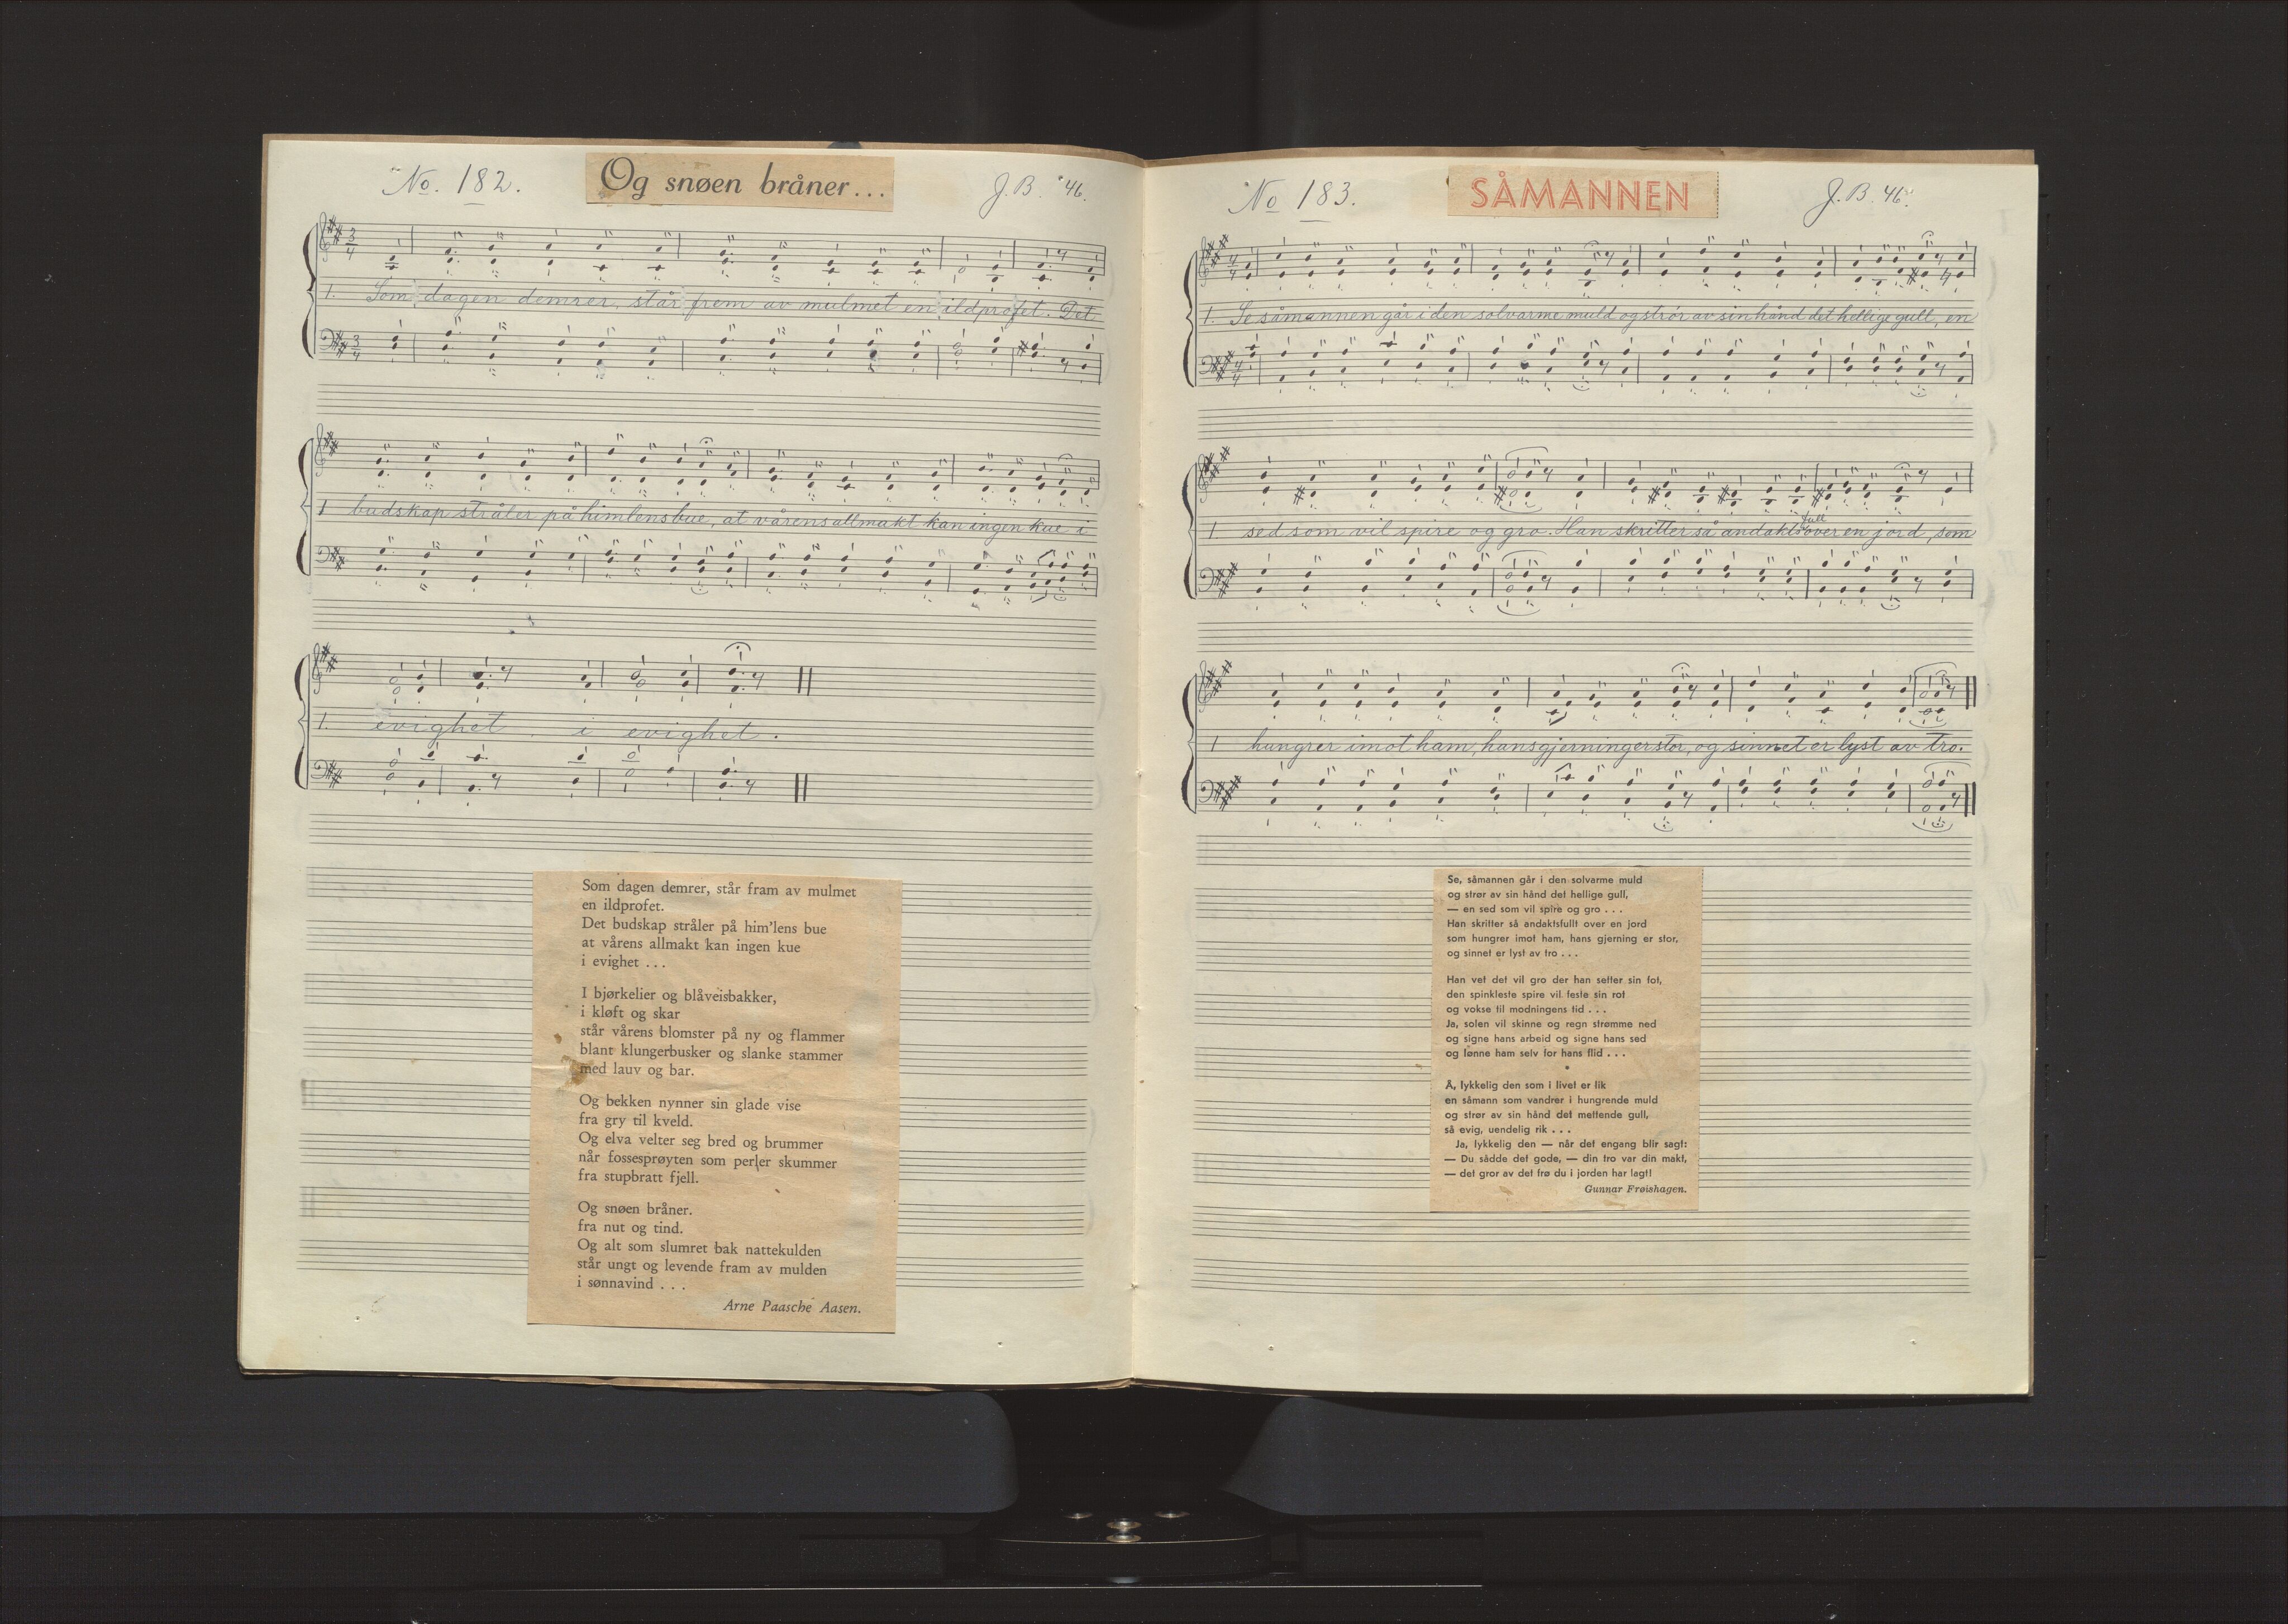 No. 182.
Og snøen bråner...
J.B. '46.
3/4
1. Som dagen demrer, står frem av mulmet en ildprofet. Det
3/4
1 budskap stråler på himlens bue, at vårens allmakt kan ingen kue i
1. evighet . i evighet .
Som dagen demrer, står fram av mulmet
en ildprofet.
Det budskap stråler på him'lens bue
at vårens allmakt kan ingen kue
i evighet . . .
I bjørkelier og blåveisbakker,
i kløft og skar
står vårens blomster på ny og flammer
blant klungerbusker og slanke stammer
med lauv og bar.
Og bekken nynner sin glade vise
fra gry til kveld.
Og elva velter seg bred og brummer
når fossesprøyten som perler skummer
fra stupbratt fjell.
Og snøen bråner.
fra nut og tind.
Og alt som slumret bak nattekulden
står ungt og levende fram av mulden
i sønnavind . . .
Arne Paasche Aasen.
No 183.
SÅMANNEN
J.B. 46.
4/4
1. Se såmannen går i den solvarme muld og strør av sin hånd det hellige gull, en
4/4
1 sed som vil spire og gro. Han skritter så andaktsfull over en jord, som
1 hungrer imot ham, hans gjerning er stor, og sinnet er lyst av tro.
Se, såmannen går i den solvarme muld
og strør av sin hånd det hellige gull,
— en sed som vil spire og gro . . .
Han skritter så andaktsfullt over en jord
som hungrer imot ham, hans gjerning er stor,
og sinnet er lyst av tro . . .
Han vet det vil gro der han setter sin fot,
den spinkleste spire vil feste sin rot
og vokse til modningens tid . . .
Ja, solen vil skinne og regn strømme ned
og signe hans arbeid og signe hans sed
og lønne ham selv for hans flid . . .
*
Å, lykkelig den som i livet er lik
en såmann som vandrer i hungrende muld
og strør av sin hånd det mettende gull,
så evig, uendelig rik . . .
Ja, lykkelig den — når det engang blir sagt:
— Du sådde det gode, — din tro var din makt,
— det gror av det frø du i jorden har lagt!
Gunnar Frøishagen.